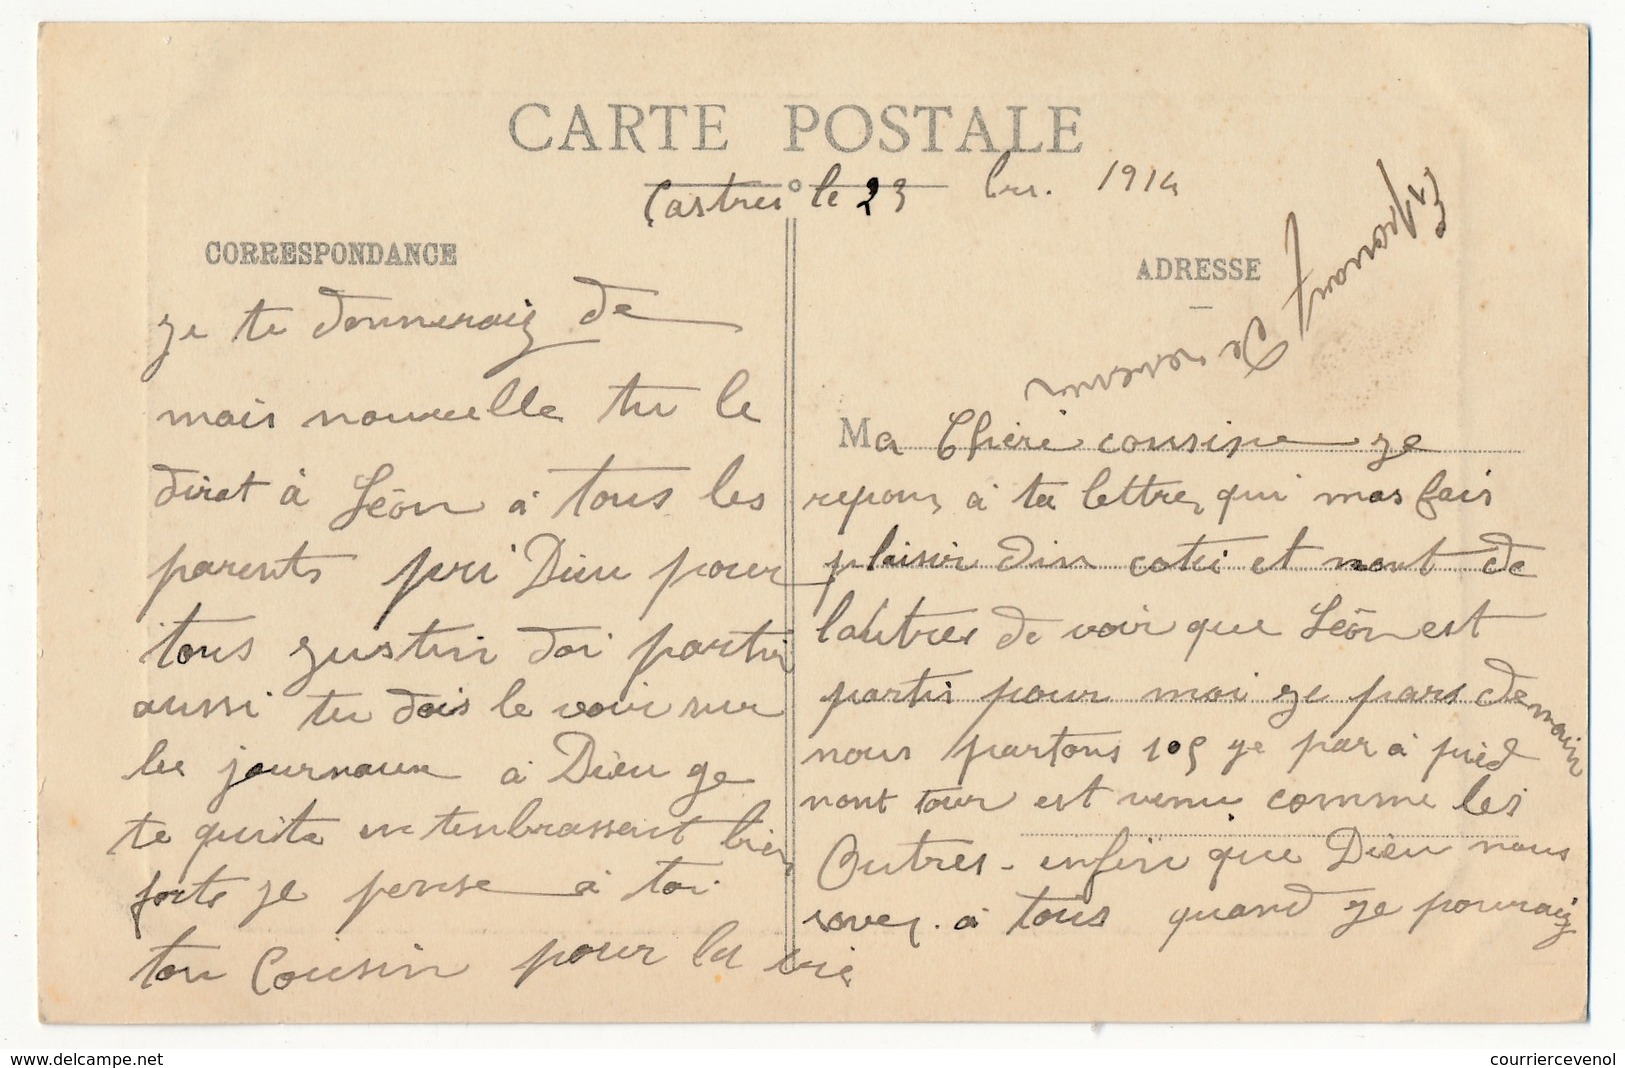 CARTE POSTALE
Castres le 23 bre. 1914
CORRESPONDANCE
ADRESSE
Ma Chère cousine ge
repons à ta lettre, qui mas fais
plaisir din coter et nont de
lautres de voir que Léon est
partis pour moi ge pars demain
nous partons 105 ge par à pied
nont tour est venu comme les
Outres - enfin que Dieu nous
sover. à tous quand ge pouraiz
ge te donneraiz de
mais nouvelle tu le
dirat à Léon à tous les
parents pri Dieu pour
tous gustin doi partir
aussi tu dois le voir sur
les journaux à Dieu ge
te quite en tenbrassent bien
forts ge pense à toi
ton Cousin pour la vie
courriercevenol.com
courriercevenol